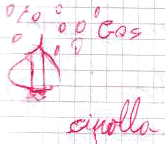 Gas
cipolla